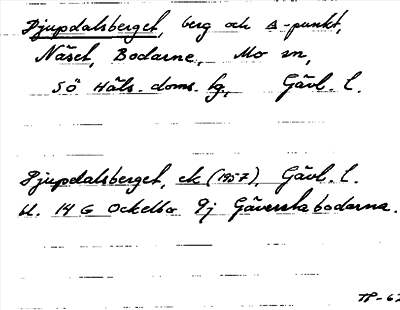 Djupdalsberget, berg och Δ-punkt,
Näset, Bodarne, Mo sn,
Sö Häls. doms. tg, Gävl. l.
Djupdalsberget, ek (1957), Gävl. l.
U. 14 G Ockelbo 9j Gäversta bodarna.
TP-62